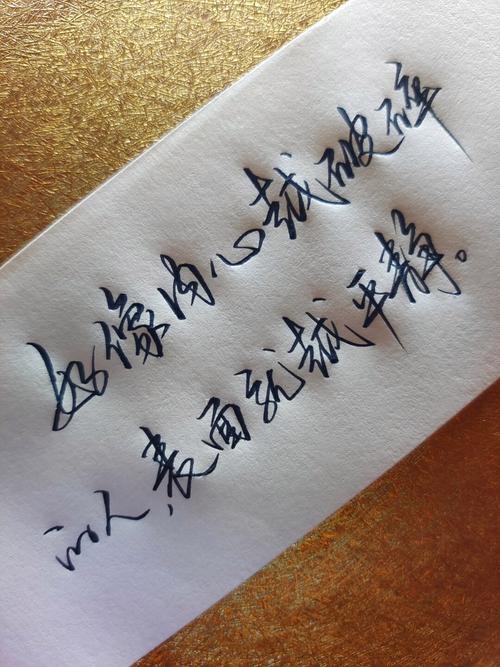 好像内心越破碎
的人，表面就越平静。